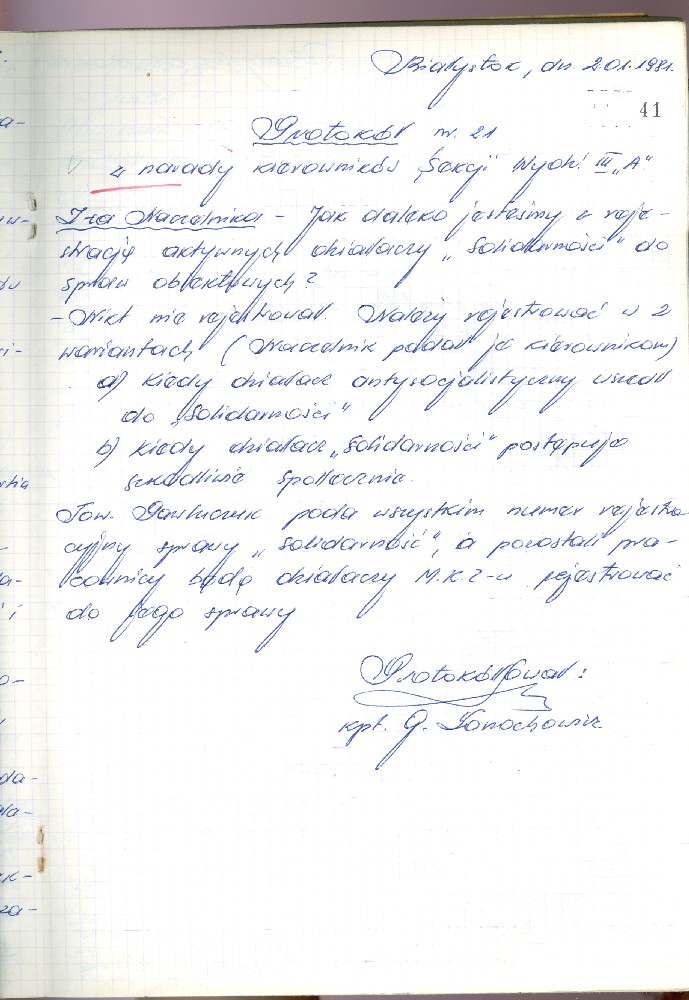 Białystok, dn 2.01.1981.
41
Protokół nr. 21
z narady kierowników Sekcji Wydz. III „A”
I-ca Naczelnika - Jak daleko jesteśmy z reje-
stracją aktywnych działaczy „Solidarności” do
spraw obiektowych?
- Nikt nie rejestrował. Należy rejestrować w 2
wariantach (Naczelnik podał je kierownikom)
a) kiedy działacz antysocjalistyczny wszedł
do „Solidarności”
b) kiedy działacz „Solidarności” postępuje
szkodliwie społecznie.
Tow. poda wszystkim numer rejestra-
cyjny sprawy „Solidarność”, a pozostali pra-
cownicy będą działaczy M.K.Z-u rejestrować
do jego sprawy
Protokółował:
kpt. G.